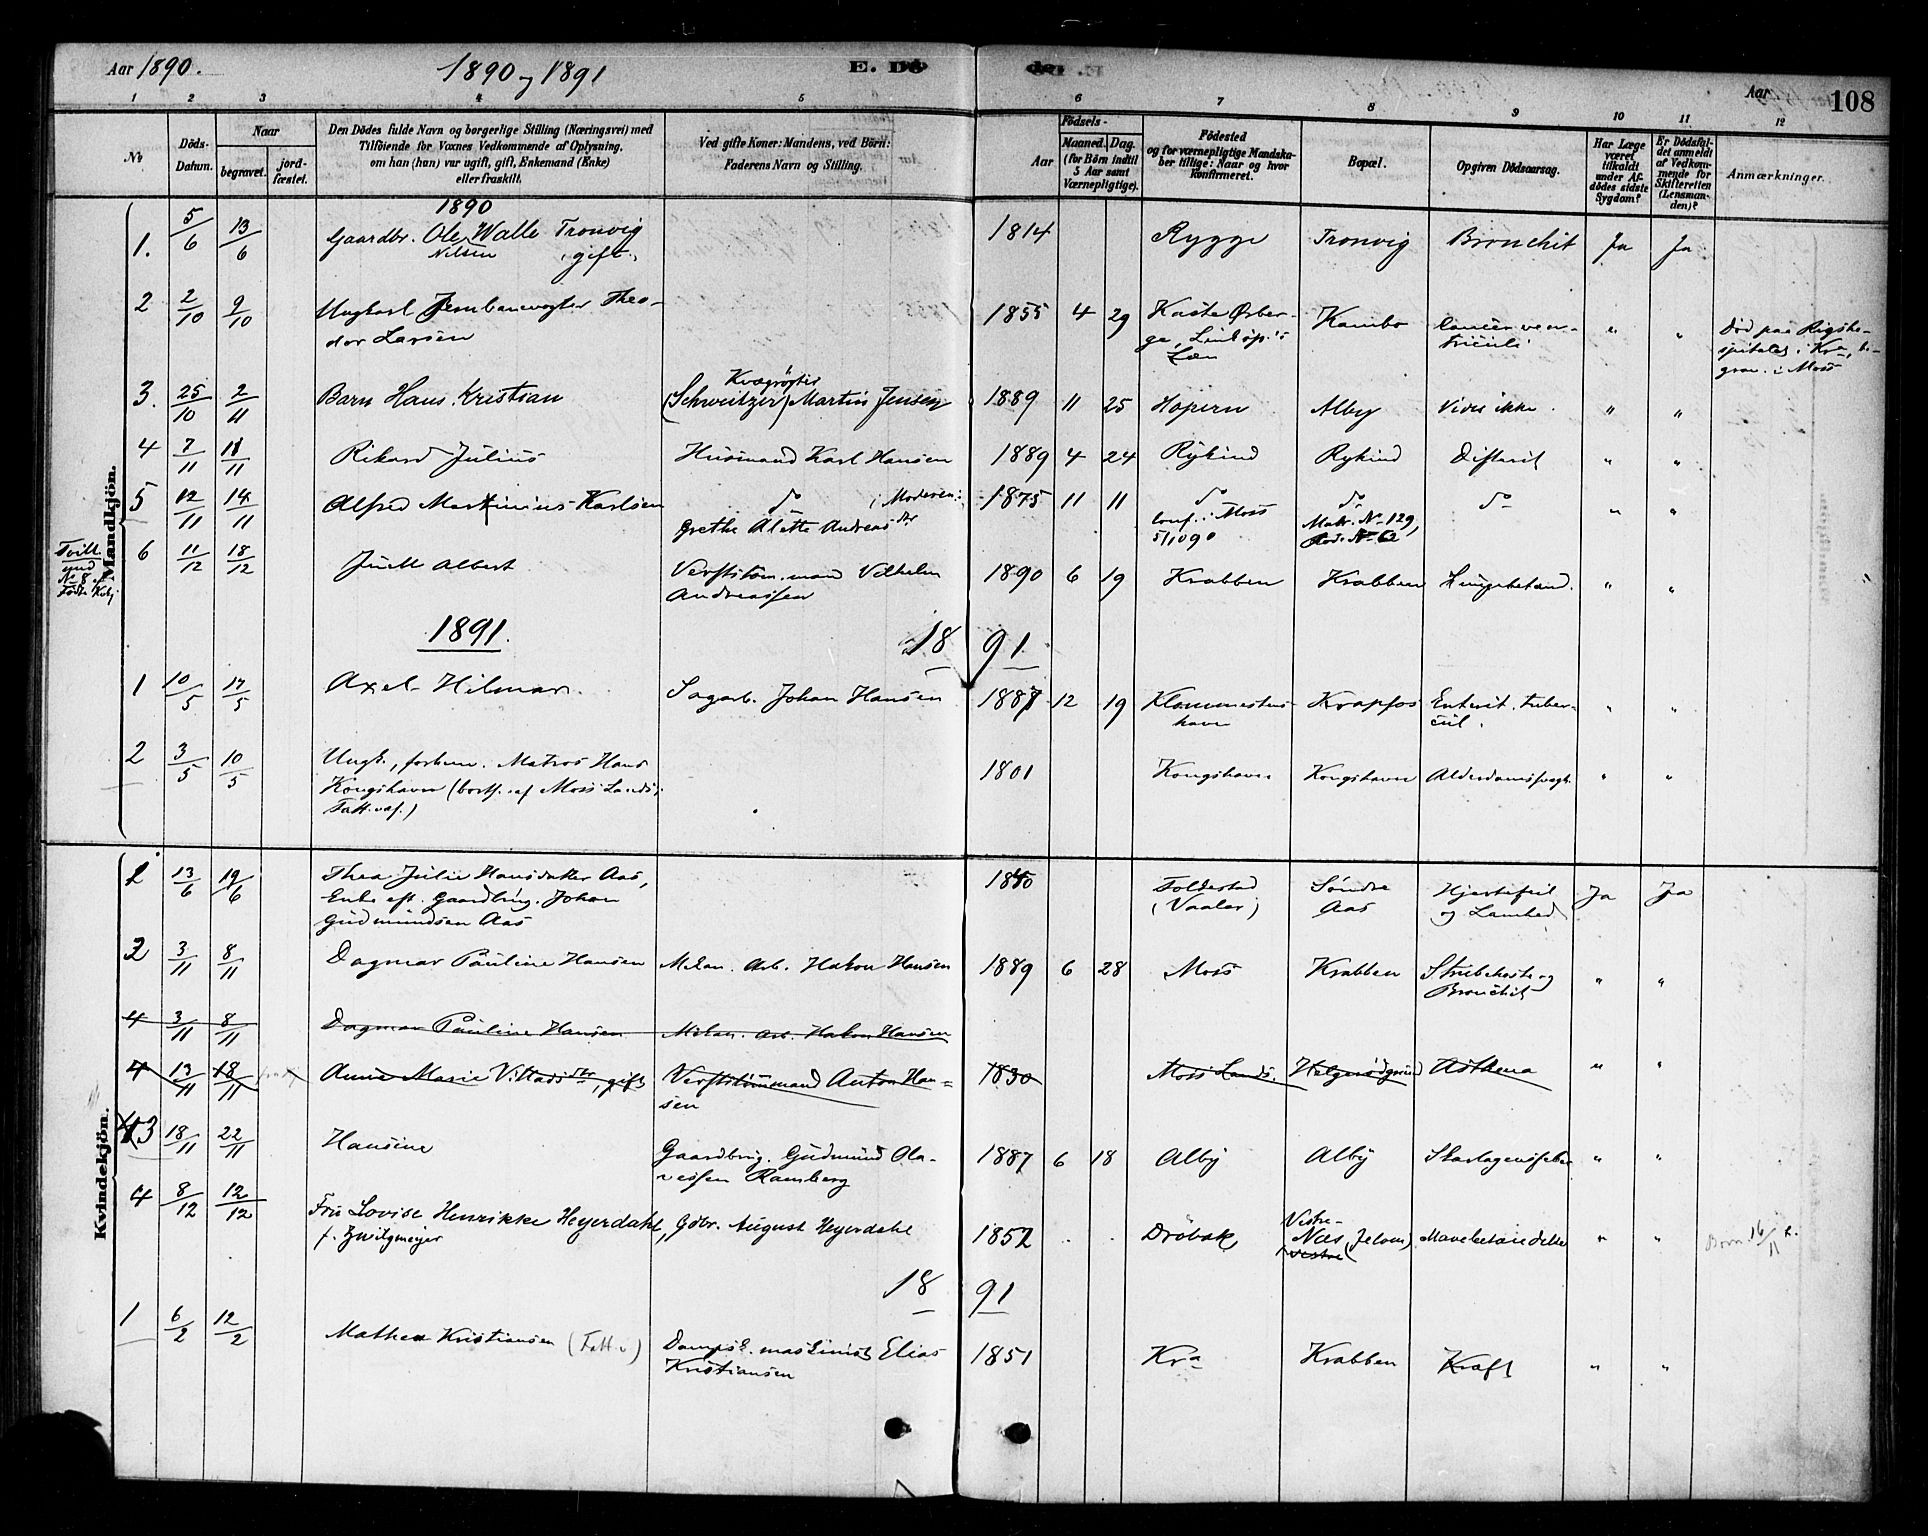 Aar 1890.
1890 og 1891
E. Dö
de.
Aar
108
1 2 3 4 5 6 7 8 9 10 11 12
№
Döds-
Datum.
Naar
begravet.
jord-
fæstet.
Den Dödes fulde Navn og borgerlige Stilling (Næringsvei) med
Tilföiende for Voxnes Vedkommende af Oplysning,
om han (hun) var ugift, gift, Enkemand (Enke)
eller fraskilt.
Ved gifte Koner: Mandens, ved Börn:
Faderens Navn og Stilling.
Födsels-
Aar
Maaned.
Dag.
(for Börn indtil
5 Aar samt
Værnepligtige).
Födested
og for værnepligtige Mandska-
ber tillige: Naar og hvor
konfirmeret.
Bopæl.
Opgiven Dödsaarsag.
Har Læge
været
tilkaldt
under Af-
dödes sidste
Sygdom?
Er Dödsfal-
det anmeldt
af Vedkom-
mende for
Skifteretten
(Lensman-
den)?
Anmærkninger.
Mandkjön.
1890
1. 5/6 13/6 Gaardbr. Ole Walle Tronvig 1814 Rygge Tronvig Bronchit Ja Ja
Nilsen gift.
2 2/10 9/10 Ungkarl Jernbanevogter Theo- 1855 4 29 Kaste Ørber- Kambo Cancer ven- " "
dor Larsen ga, Linköp.'s triculi
Læn
Död paa Rigsho-
spitalet i Kra, be-
grav. i Moss
Kvægrögter
3. 25/10 2/11 Barn Hans Kristian (Schweitzer) Martin Jensen 1889 11 25 Hopern Alby Vides ikke. " "
4 7/11 11/11 Rikard Julius Husmand Karl Hansen 1889 4 24 Rykind Rykind Difterit " "
5 12/11 14/11 Alfred Martinius Karlsen do (Moderen: 1875 11 11 do do do " "
Grethe Alette Andreasdr conf. i Moss Matr. No 129,
5/10 90
Tvill.
No 8
6 11/12 18/12 Juell Albert Verftstöm.mand Vilhelm 1890 6 19 Krabben Krabben Lungebetænd. " "
Andreassen
1891. 18 91
1 10/5 17/5 Axel Hilmar. Sagarb. Johan Hansen 1887 12 19 Klommesten- Krapfos Enterit. tuber- " "
havn cul.
2 3/5 10/5 Ungk., forhen. Matros Hans 1801 Kongshavn Kongshavn Alderdomssvagh. " "
Kongshavn (borts. af Moss Lands.
Fattiv.)
Kvindekjön.
1 13/6 19/6 Thea Julie Hansdatter Aas, 1840 Foldestad Söndre Hjertefeil Ja Ja
Enke eft. Gaardbrug. Johan (Vaaler) Aas og Lamhed
Gudmundsen Aas
2 3/11 8/11 Dagmar Pauline Hansen Mekan. Arb. Hakon Hansen 1889 6 28 Moss Krabben Strubehoste og " "
Bronchit
4 3/11 8/11 Dagmar Pauline Hansen Mekan. arb. Hakon Hansen
4 13/11 18/11 Anne Marie Villadsdtr, gift Verftstömmand Anton Han- 1830 Moss Lands. Helgerödgrund Asthma " "
sen
3 18/11 22/11 Hansine Gaardbrug. Gudmund Ola- 1887 6 18 Alby Alby Skarlagensfeber " "
vessen Ramberg
4 8/12 12/12 Fru Lovise Henrikke Heyerdahl, Gdbr. August Heyerdahl 1852 Dröbak Vestre Næs (Jeloen) Mavebetændelse " "
f. Zwilgmeyer vestre
16/11
18 91
1 6/2 12/2 Mathea Kristiansen (Fatt.v) Dampsk. maskinist Elias 1851 Kra Krabben Kræft " "
Kristiansen